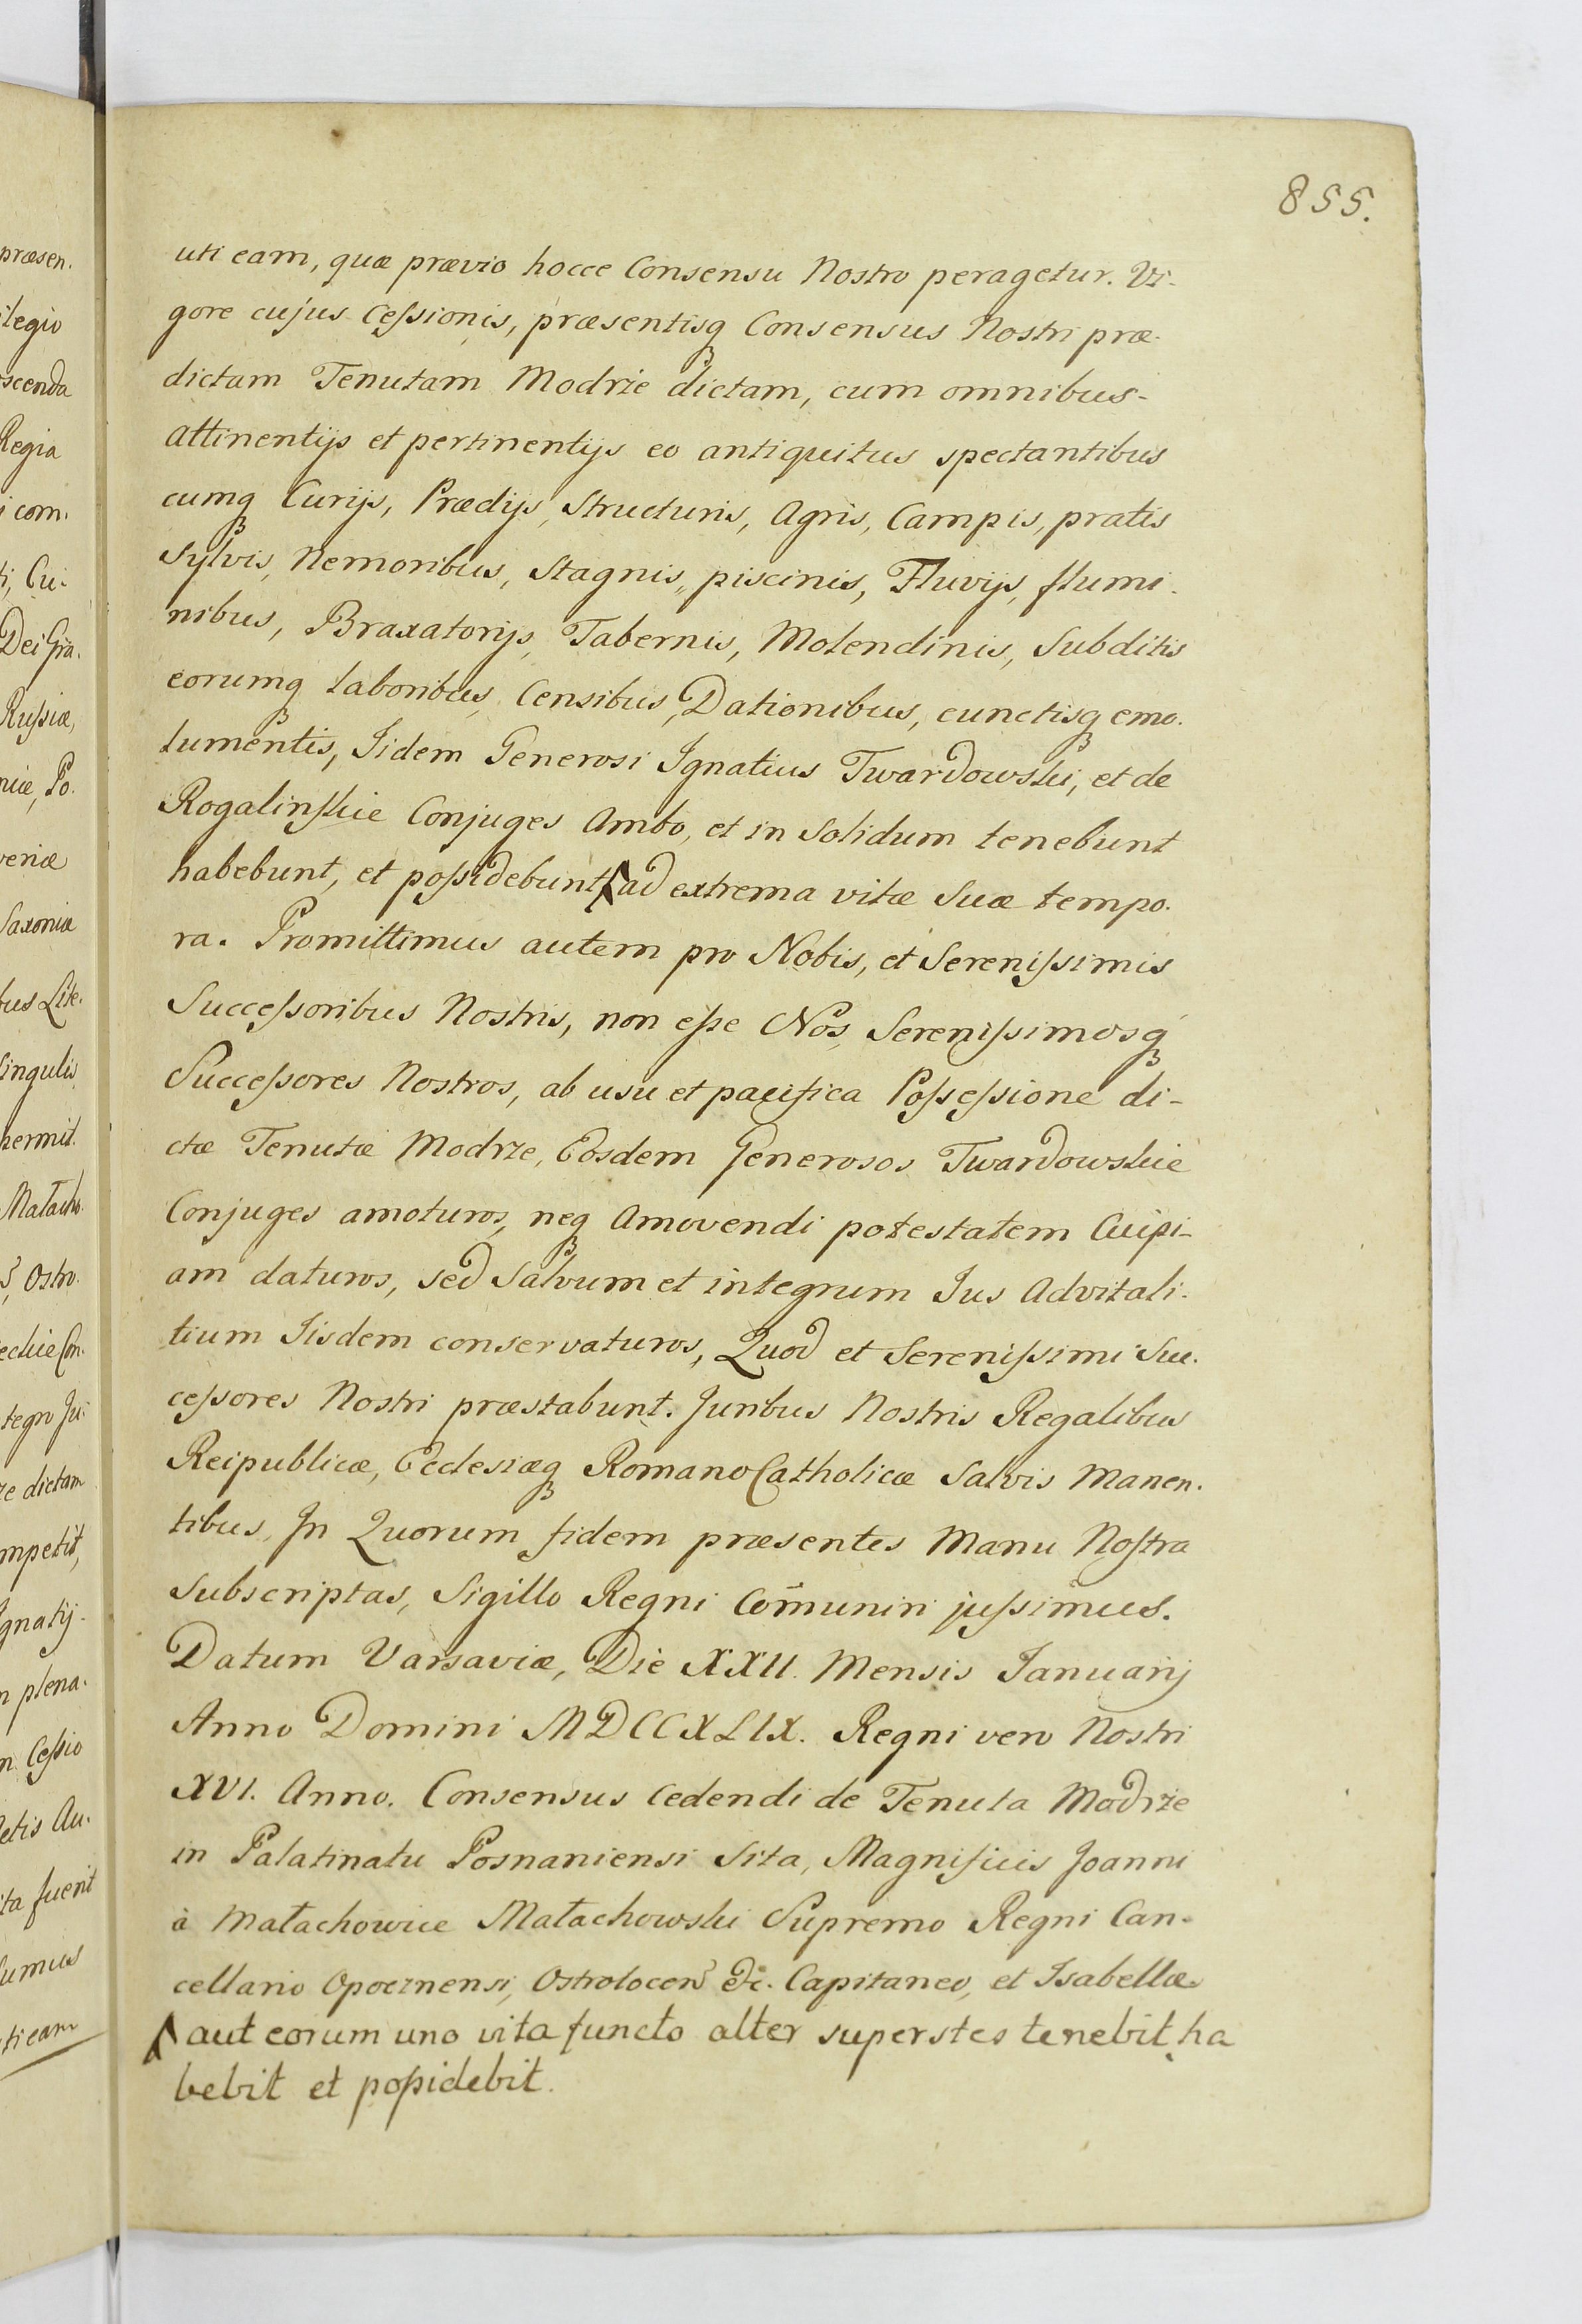 855.
uti eam, quæ prævio hocce Consensu Nostro peragetur. Vi-
gore cujus Ceſsionis, præsentisq Consensus Nostri præ-
dictam Tenutam Modrże dictam, cum omnibus-
attinentijs et pertinentijs eo antiquitus spectantibus
cumq Curijs, Prædijs, Structuris, Agris, Campis, pratis
Sylvis, Nemoribus, Stagnis, piscinis, Fluvijs, flumi-
nibus, Braxatorijs, Tabernis, Molendinis, Subditis
eorumq laboribus, Censibus, Dationibus, cunctisq emo-
lumentis, Iidem Generosi Ignatius Twardowski, et de
Rogalinskie Conjuges Ambo, et in Solidum tenebunt
habebunt, et poſsidebunt, ad extrema vitæ Suæ tempo-
ra. Promittimus autem pro Nobis, et Sereniſsimis
Succeſsoribus Nostris, non eſse Nos, Sereniſsimosq
Succeſsores Nostros, ab usu et pacifica Poſseſsione di-
ctæ Tenutæ Modrze, Eosdem Generosos Twardowskie
Conjuges amoturos, neq Amovendi potestatem Cuipi-
am daturos, sed Salvum et integrum Jus Advitali-
tium Iisdem conservaturos, Quod et Sereniſsimi Suc-
ceſsores Nostri præstabunt. Juribus Nostris Regalibus
Reipublicæ, Ecclesiæq Romano Catholicæ Salvis Manen-
tibus. In Quorum fidem præsentes Manu Noſtra
Subscriptas, Sigillo Regni Com̃uniri juſsimus.
Datum Varsaviæ, Die XXII. Mensis Januarij
Anno Domini MDCCXLIX. Regni vero Nostri
XVI. Anno. Consensus Cedendi de Tenuta Modrże
in Palatinatu Posnaniensi Sita, Magnificis Joanni
à Małachowice Małachowski Supremo Regni Can-
cellario Opocznensi, Ostrołocen &c. Capitaneo, et Isabellæ
aut eorum uno vita functo alter superstes tenebit, ha
bebit et poſsidebit.